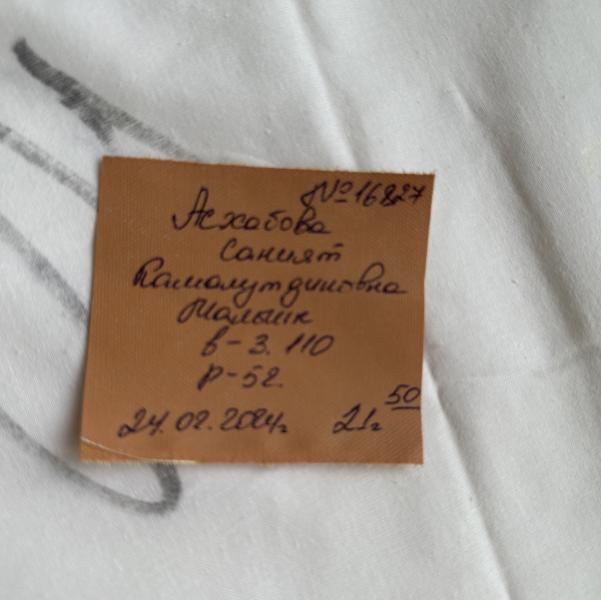 №16827
Асхабова
Саният
Камалутдиновна
Мальчик
в-3.110
р-52
24.02.2024г 21г 50